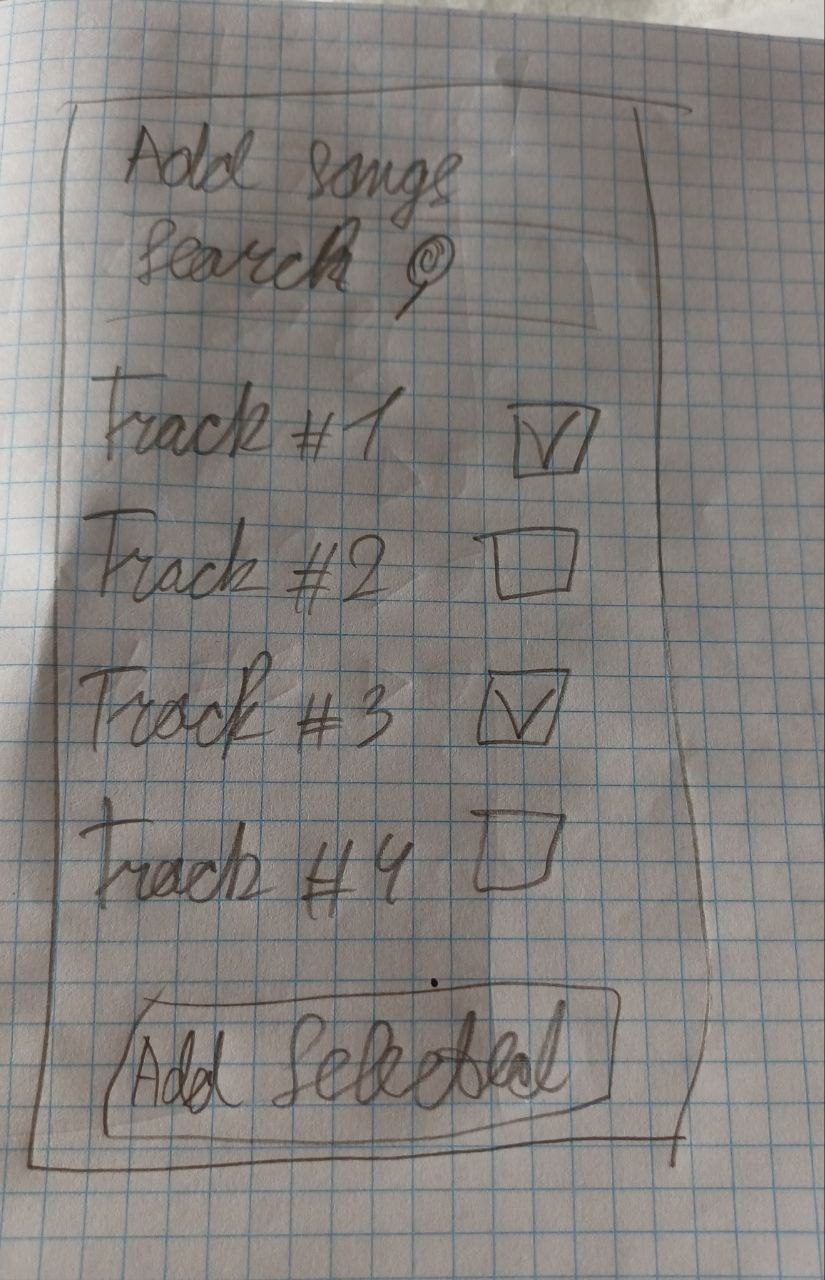 Add songs
Search
Track #1
Track #2
Track #3
Track #4
Add Selected